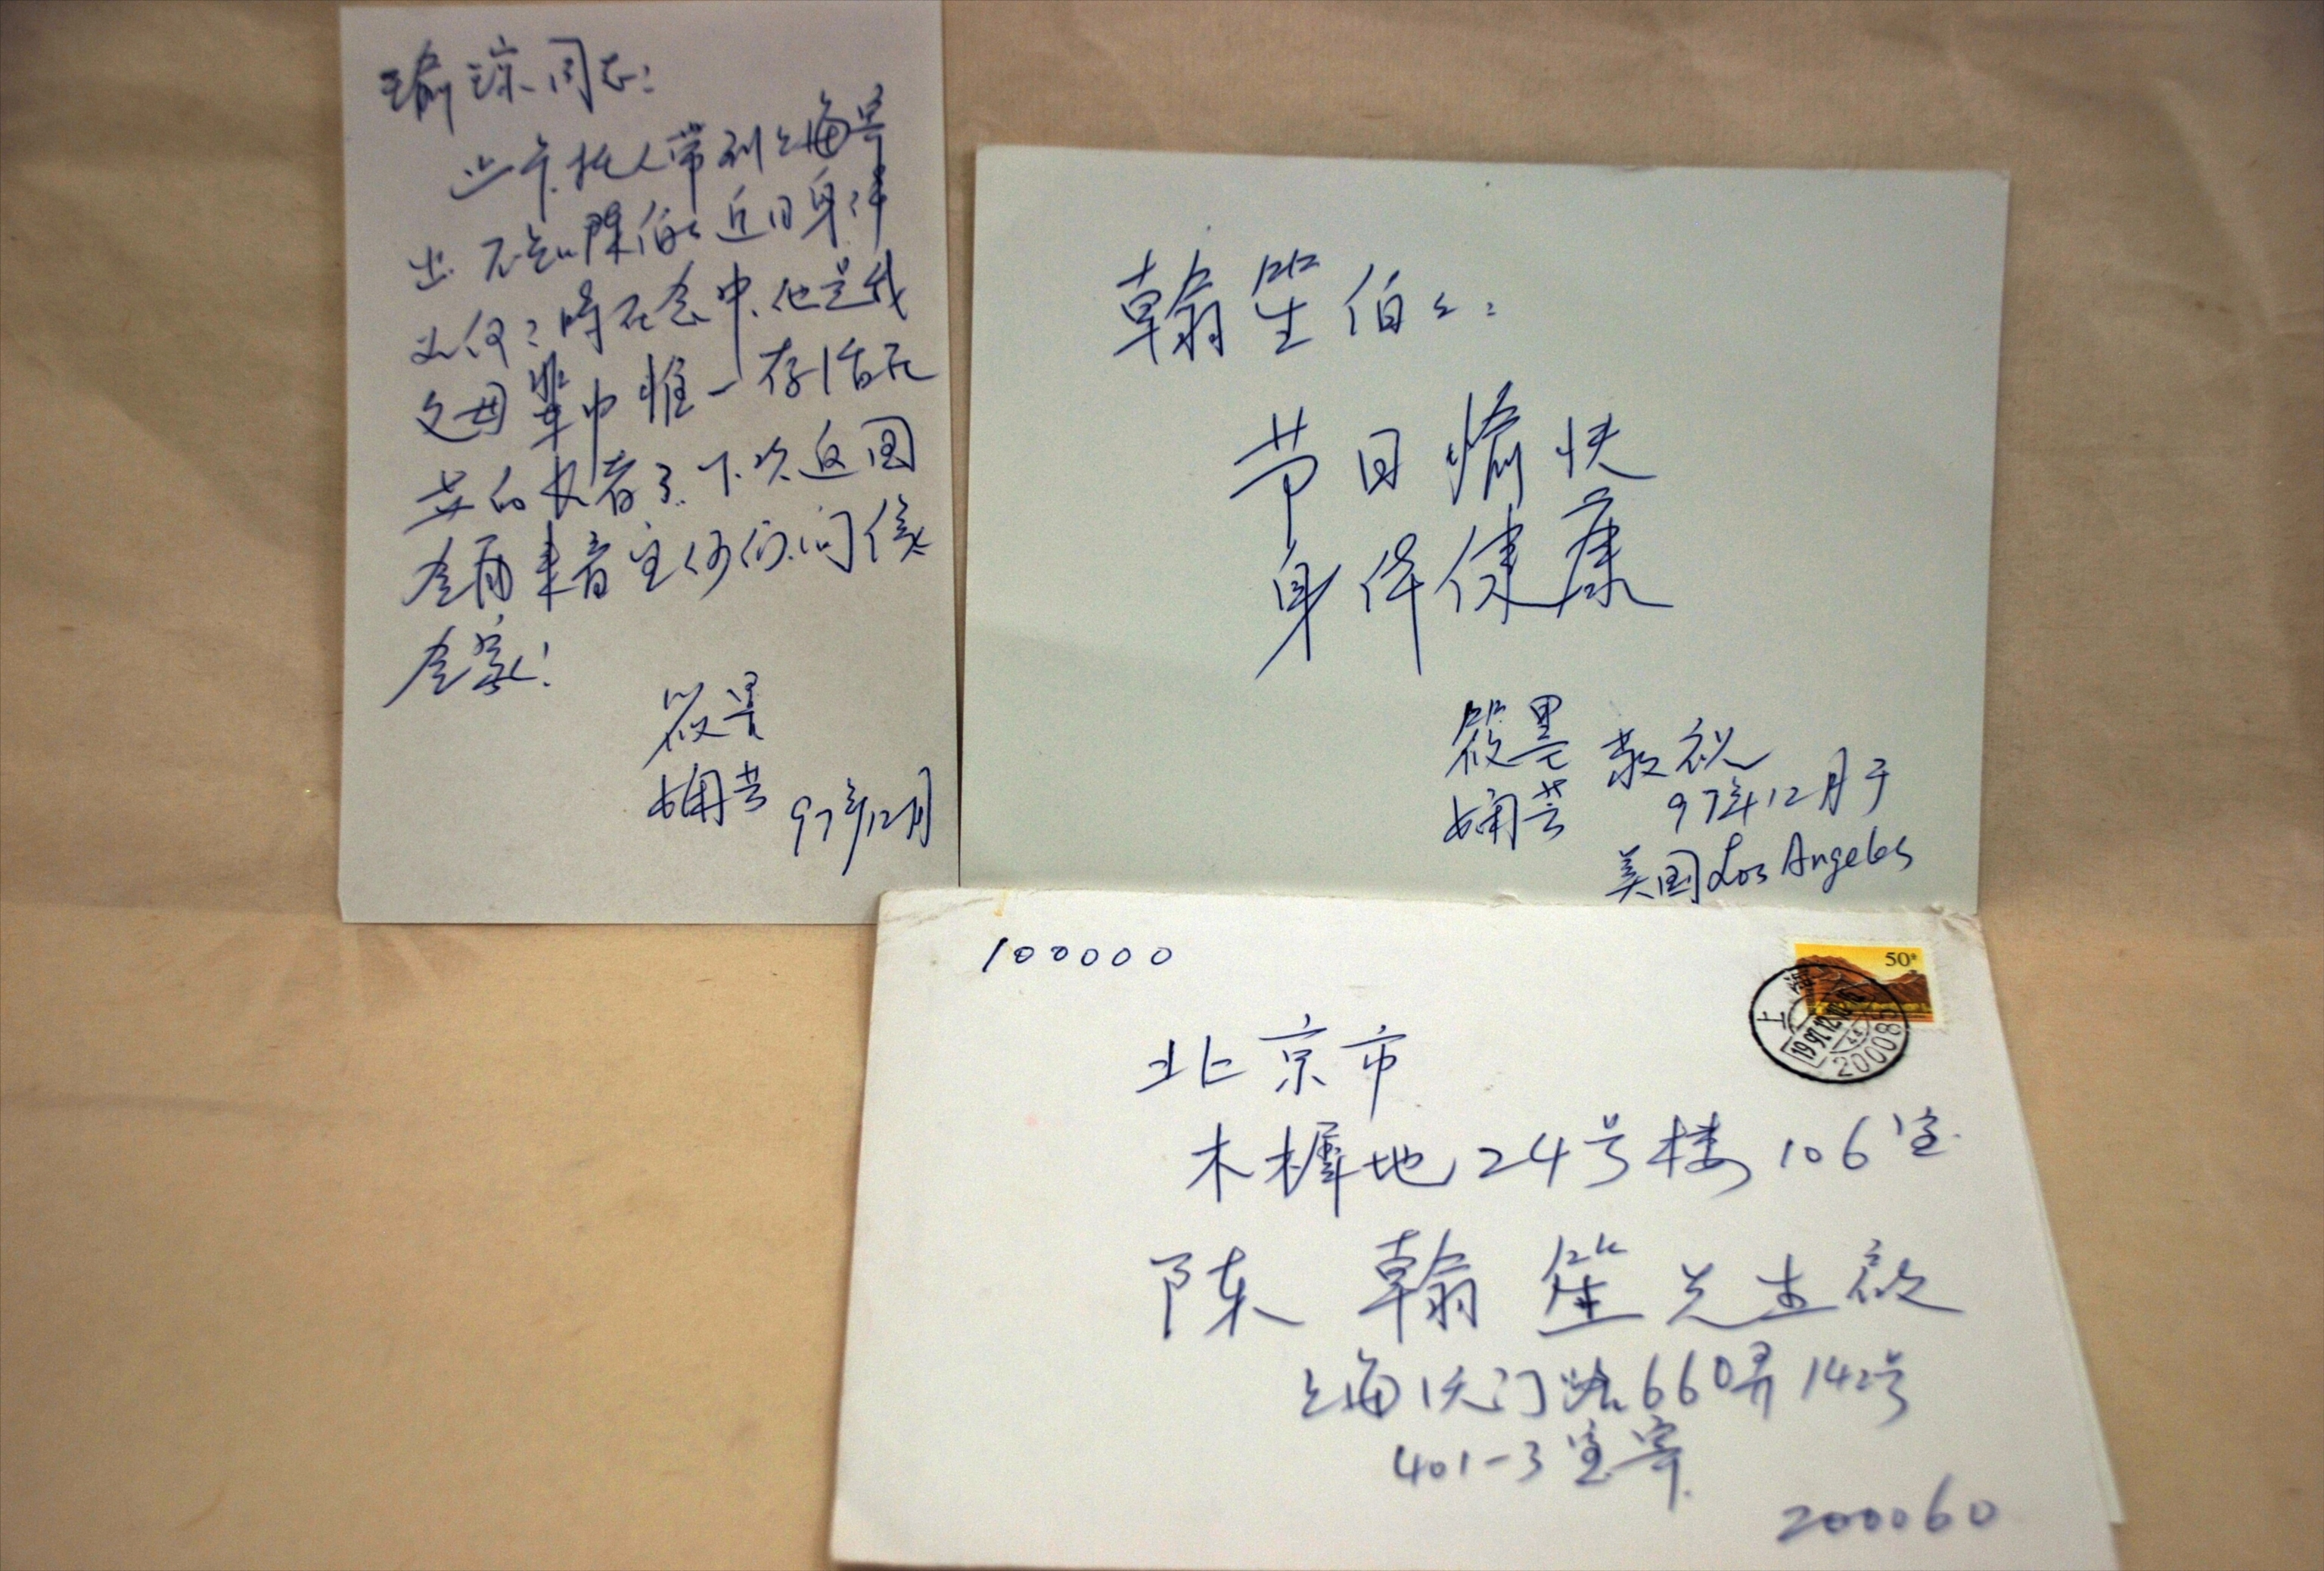 瑜琼同志:
此卡托人带到上海寄
出. 不知陈伯伯近日身体
如何? 时在念中. 他是我
父母辈中惟一存活在
世的长者了. 下次返国
会再来看望你们. 问侯
全家!
筱墨
娴芸 97年12月
翰笙伯伯:
节日愉快
身体健康
筱墨
娴芸 敬祝
97年12月于
美国 Los Angeles
100000
50分
上海
1997.12
200085
北京市
木樨地24号楼106室
陈翰笙先生啟
上海 门路660弄142号
401-3室寄
200060